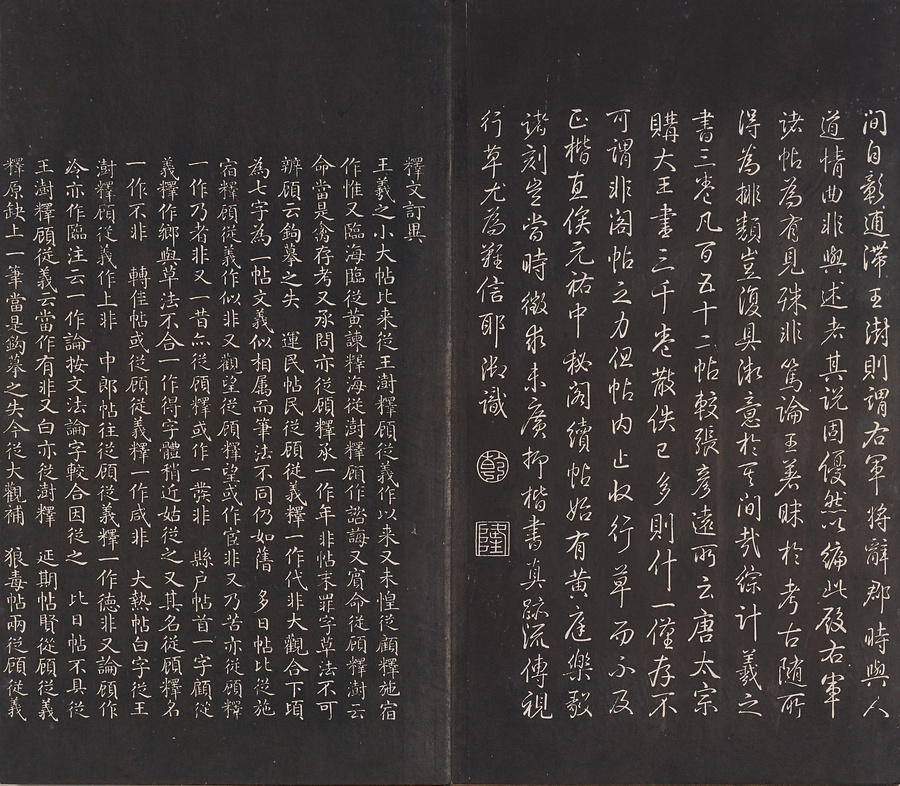 间自彰逋滯王澍則謂右軍將辭郡時與人
道情曲非與述者其說固優然以編此段右軍
諸帖為有見殊非篤論王著昧於考古隨所
得為排類豈復具微意於其間哉綜計羲之
書三卷凡百五十二帖較張彥遠所云唐太宗
購大王書三千卷散佚已多則什一僅存不
可謂非閣帖之力但帖內止收行草而不及
正楷直俟元祐中秘閣續帖始有黃庭樂毅
諸刻豈當時徵求未廣抑楷書真跡流傳視
行草尤為難信耶御識
乾 隆
釋文訂異
王羲之小大帖比来從王澍釋顧從義作以来又未惶從顧釋施宿
作惟又臨海臨從黃諫釋海從澍釋顧作詒誨又賓命從顧釋澍云
命當是禽存考又承問亦從顧釋承一作年非帖末罪字草法不可
辨顧云鉤摹之失 運民帖民從顧從義釋一作代非大觀合下頃
為七字為一帖文義似相屬而筆法不同仍如舊 多日帖比從施
宿釋顧從義作似非又觀望從顧釋望或作宦非又乃苦亦從顧釋
一作乃者非又一昔亦從顧釋或作一發非 縣户帖首一字顧從
義釋作鄉與草法不合一作得字體稍近姑從之又其名從顧釋名
一作不非 轉佳帖或從顧從義釋一作咸非 大熱帖白字從王
澍釋顧從義作上非 中郎帖往從顧從義釋一作德非又論顧作
亦作臨注云一作論按文法論字較合因從之 比日帖不具從
王澍釋顧從義云當作有非又白亦從澍釋 延期帖賢從顧從義
釋原缺上一筆當是鉤摹之失今從大觀補 狼毒帖兩從顧從義